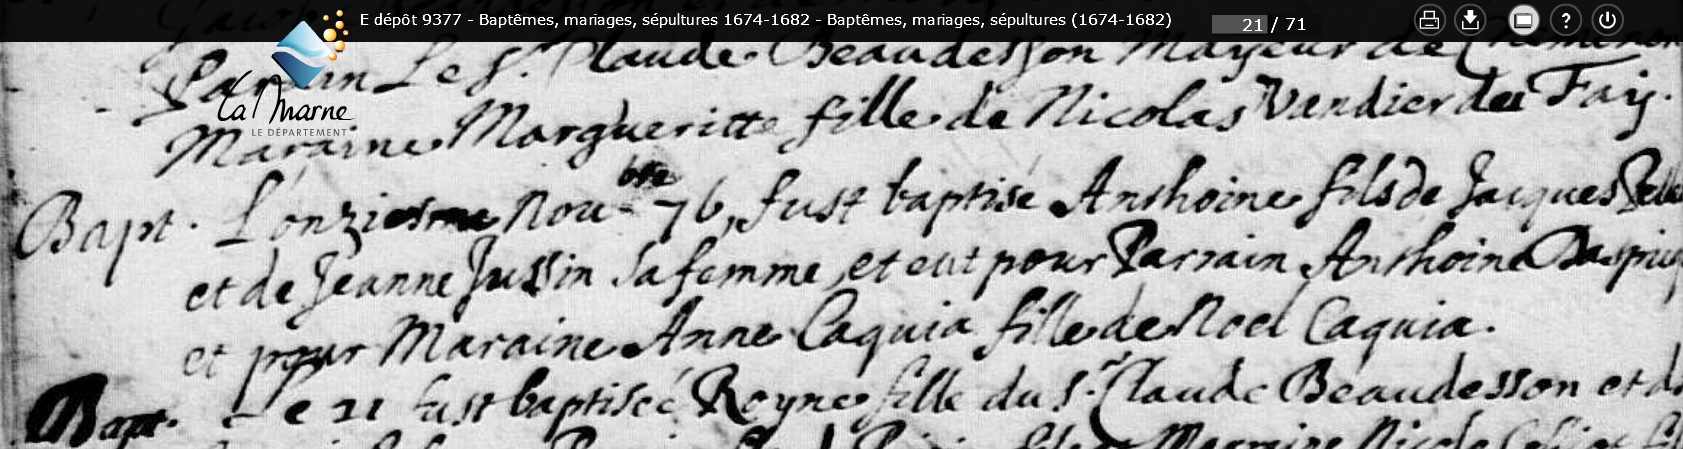 E dépôt 9377 - Baptêmes, mariages, sépultures 1674-1682 - Baptêmes, mariages, sépultures (1674-1682)
21 / 71
?
La Marne
LE DÉPARTEMENT
Parain Le Sr. Claude Beaudesson Mayeur de
Maraine Margueritte fille de Nicolas Vandier du Fay.
Bapt. L'onziesme Nou bre 76, fust baptisé Anthoine fils de Jacques
et de Jeanne Jussin sa femme, et eut pour Parrain Anthoine
et pour Maraine Anne Caquia fille de Noel Caquia.
Bapt. Le 21 fust baptiseé Reyne fille du Sr. Claude Beaudesson et